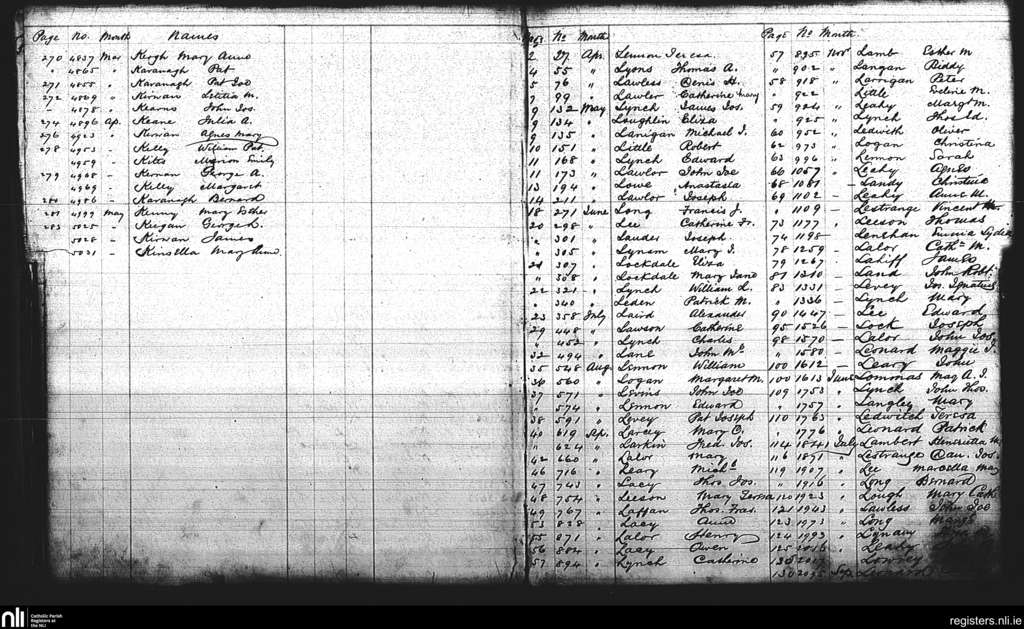 Page No. Month Names
270 4837 Mar Keogh Mary Anne
" 4865 " Kavanagh Pat
271 4858 " Kavanagh Pat Joe
272 4869 " Kirwan Letitia M.
– 4878 " Kearns John Jos.
274 4896 Ap. Keane Julia A.
276 4923 " Kirwan Agnes Mary
278 4953 – Kelly William Pat.
4959 – Kitts Marion Emily
279 4968 – Kernan George A.
4969 – Kelly Margaret
280 4986 – Kavanagh Bernard
281 4999 May Kenny Mary Esther
283 5025 – Keegan George R.
5028 – Kirwan James
5021 – Kinsella Mary Anne
Page No Month
2 27 Apr. Lennon Teresa
4 55 " Lyons Thomas A.
5 76 " Lawless Denis H.
7 99 " Lawler Catherine Mary
9 132 May Lynch James Jos.
9 134 " Loughlin Eliza
9 135 " Lanigan Michael J.
10 151 " Little Robert
11 168 " Lynch Edward
11 173 " Lawlor John Joe
13 194 " Lowe Anastasia
14 211 " Lawlor Joseph
18 271 June Long Francis J.
20 298 " Lee Catherine Fr.
" 301 " Lauder Joseph
" 305 " Lynam Mary J.
21 307 " Lockdale Eliza
" 308 " Lockdale Mary Jane
22 321 " Lynch William L.
" 340 " Leden Patrick M.
23 358 July Laird Alexander
29 448 " Lawson Catherine
" 452 " Lynch Charles
32 494 " Lane John
35 548 Aug. Lennon William
36 560 " Logan Margaret M.
37 571 " Lewis John Joe
" 574 " Lennon Edward
38 591 " Levey Pat Joseph
40 619 Sep. Larcey Mary C.
" 624 " Larkin Thos. Jos.
42 660 " Lalor Mary
46 716 " Leary Michl
47 743 " Lacy Thos. Jos.
48 754 " Leeson Mary Teresa
49 767 " Laffan Thos. Fras.
53 828 " Lacy Anne
55 871 " Lalor Henry
56 884 " Lacy Owen
57 894 " Lynch Catherine
Page No Month
57 895 Novr Lamb Esther M
" 902 " Langan Biddy
58 918 " Lorrigan Peter
" 922 Little M.
59 924 " Leahy Margt M.
" 925 " Lynch Thos Id.
60 952 " Ledwith Oliver
62 973 " Logan Christina
63 996 " Lennon Sarah
66 1057 " Leahy Agnes
68 1081 – Landy Christine
69 1102 – Leahy Anne M.
" 1109 – Lestrange Vincent
73 1177 " Leeson Thomas
74 1198 – Lenehan Emma Lydia
78 1259 – Lalor Cath. M.
79 1267 – Lahiff James
81 1310 – Land John Robt.
83 1331 – Levey Jos. Ignatius
" 1336 – Lynch Mary
90 1447 – Lee Edward
95 1526 – Lock Joseph
98 1570 – Lalor John Jos.
" 1580 – Leonard Maggie J.
100 1612 – Leary John
100 1613 June Lommas May A. J.
109 1753 " Lynch John Thos.
" 1757 " Langley Mary
110 1763 " Ledwitch Teresa
" 1776 " Leonard Patrick
114 1841 July Lambert Henrietta M
116 1891 " Lestrange Dan. Jos.
119 1907 " Lee Marcella May
" 1916 " Long Bernard
120 1923 " Lough Mary Cath.
121 1943 " Lawless John Joe
123 1973 " Long
124 1993 " Lynam
125 2016 " Leahy
Lowrey
Sep. Leonard
nli Catholic Parish
Registers at
the NLI
registers.nli.ie